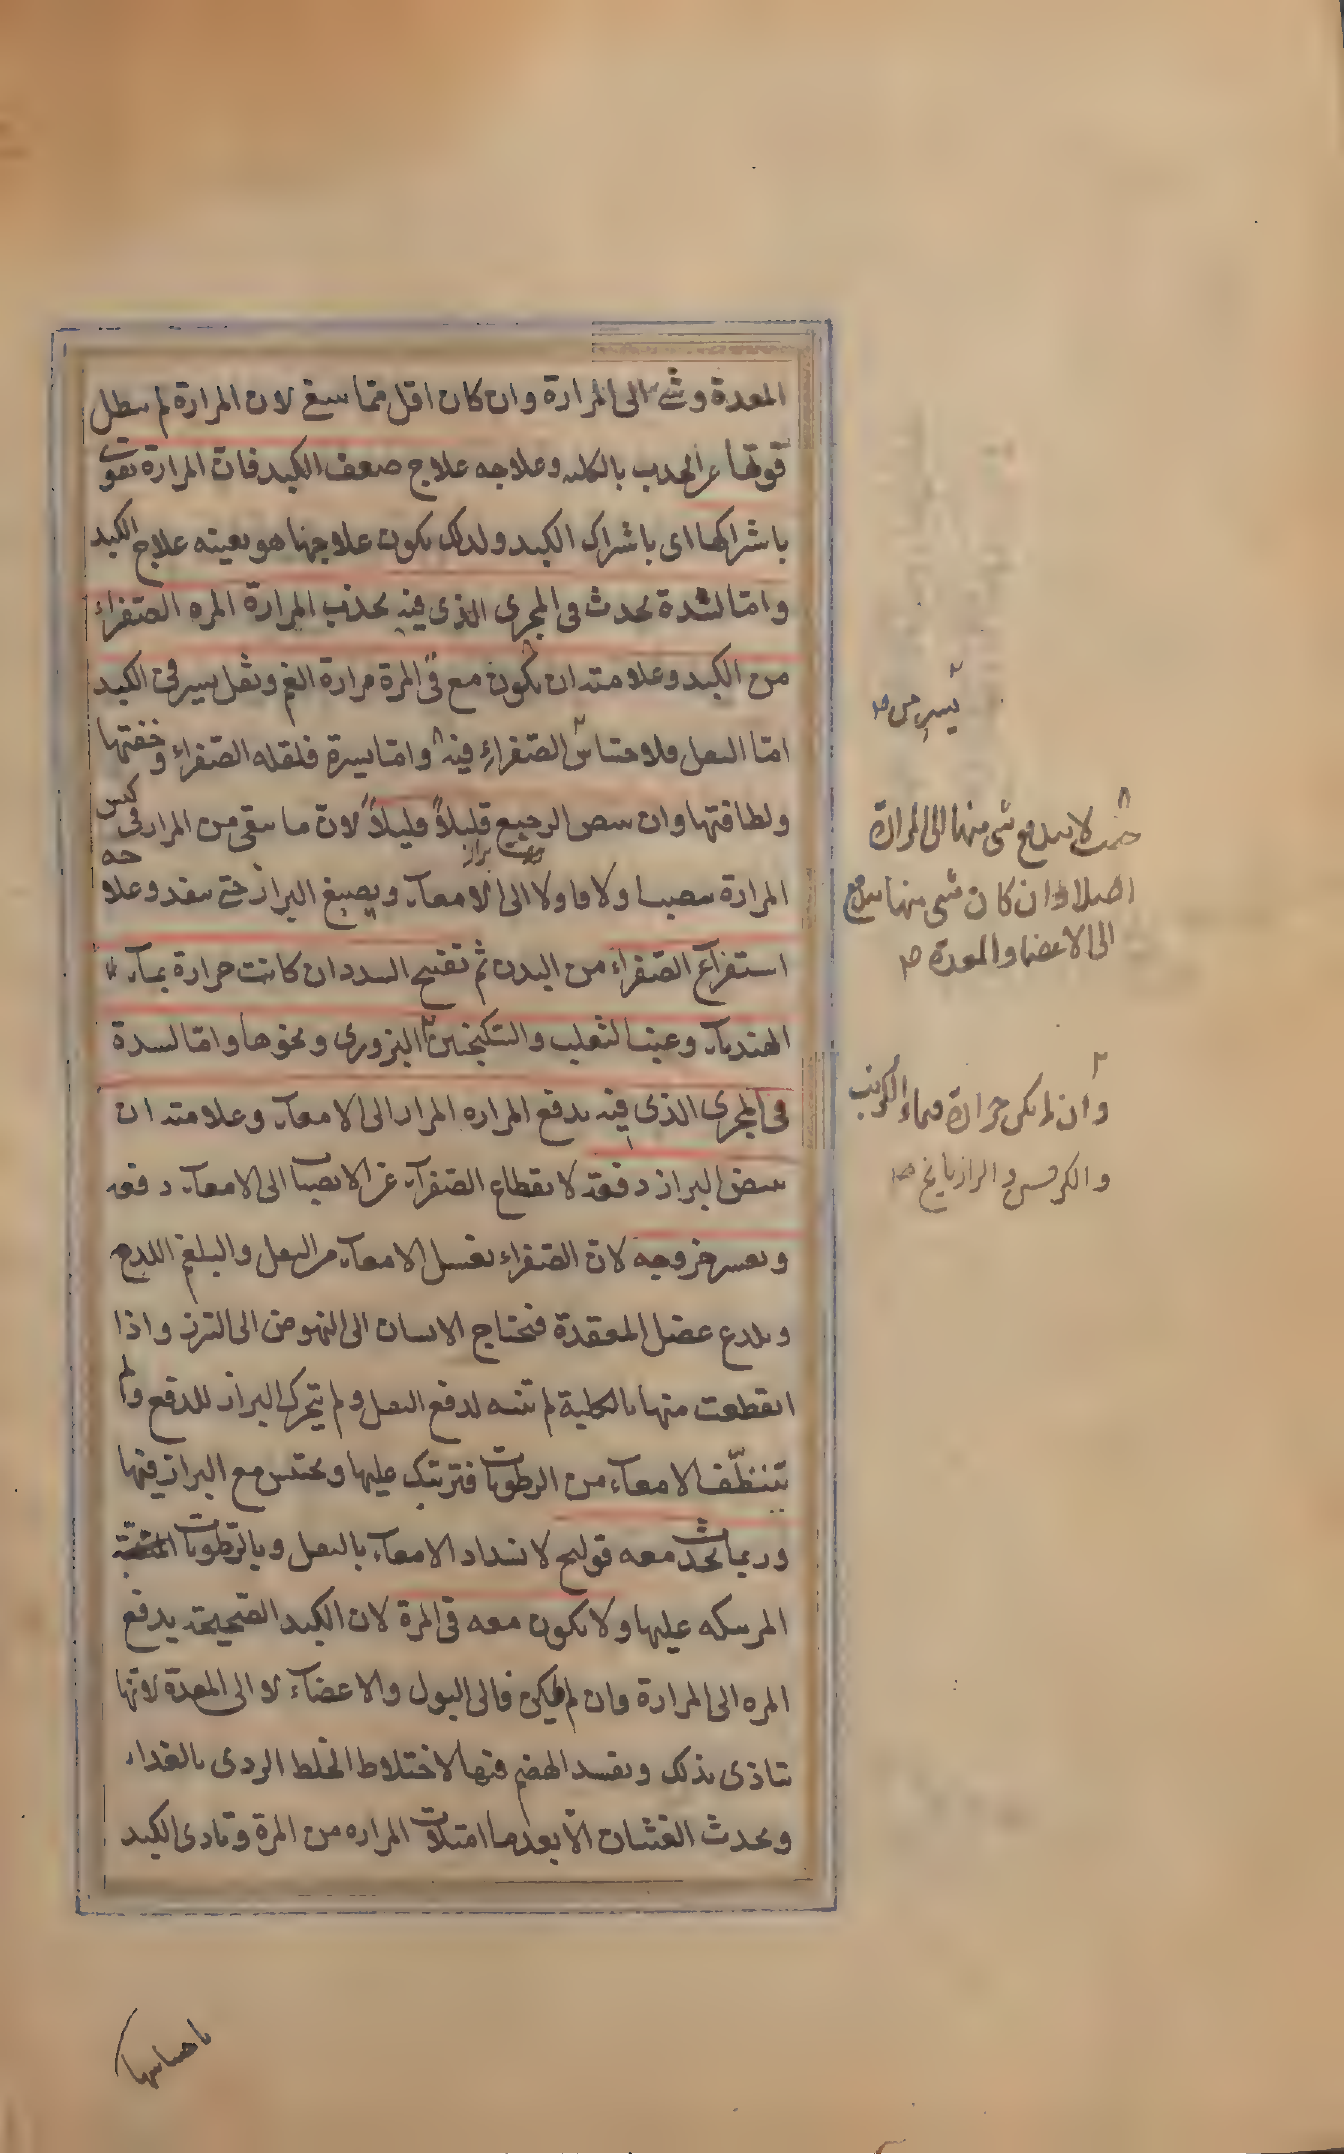 المعدة وشئ الى المرارة وان كان اقل مما ينبغى لان المرارة لم يبطل
قوتها عن الجذب بالكليه وعلاجه علاج ضعف الكبد فان المرارة تقوى
باشراكها اى باشراك الكبد ولذلك يكون علاجهما هو بعينه علاج الكبد
واما لسدة يحدث فى المجرى الذى فيه يجذب المرارة المره الصفراء
من الكبد وعلامته ان يكون مع قئ المرة مرارة الفم وثقل يسير فى الكبد
اما الثقل فلاحتباس الصفراء فيه واما يسيرة فلقله الصفراء وخفتها
ولطافتها وان يبيض الرجيع قليلاً قليلاً لان ما يبقى من المرار فى كيس
المرارة ينصب اولا فاولا الى الامعاء ويصبغ البراز حتى ينفد وعلاجه
استفراغ الصفراء من البدن ثم تفتيح السدد ان كانت حرارة بماء
الهندباء وعنب الثعلب والسكنجبين البزورى ونحوها واما لسدة
فى المجرى الذى فيه يدفع المراره المرار الى الامعاء وعلامته ان
يبيض البراز دفعة لانقطاع الصفراء عن الانصباب الى الامعاء دفعه
ويعسر خروجه لان الصفراء يغسل الامعاء من الثفل والبلغم اللزج
ويلدغ عضل المقعدة فيحتاج الانسان الى النهوض الى التبرز واذا
انقطعت منها بالكلية لم تنبه لدفع الثفل ولم يتحرك البراز للدفع ولم
تتنظّف الامعاء من الرطوبات فترتبك عليها ويحتبس مع البراز فيها
وربما يحدث معه قولنج لانسداد الامعاء بالثفل وبالرطوبات
المرتبكه عليها ولا يكون معه قئ المرة لان الكبد الصحيحة يدفع
المره الى المرارة وان لم يمكن فالى البول والاعضاء لا الى المعدة لانها
تتاذى بذلك ويفسد الهضم فيها لاختلاط الخلط الردى بالغذاء
ويحدث الغثيان الا بعد ما امتلات المراره من المرة وتاذى الكبد
يسير ص
حيث لا يندفع شى منها الى المرارة
اصلا وان كان شى منها يندفع
الى الاعضا والمعدة ص
وان لم يكن حرارة فبماء الكرنب
والكرفس والرازيانج ص
باحتباسها